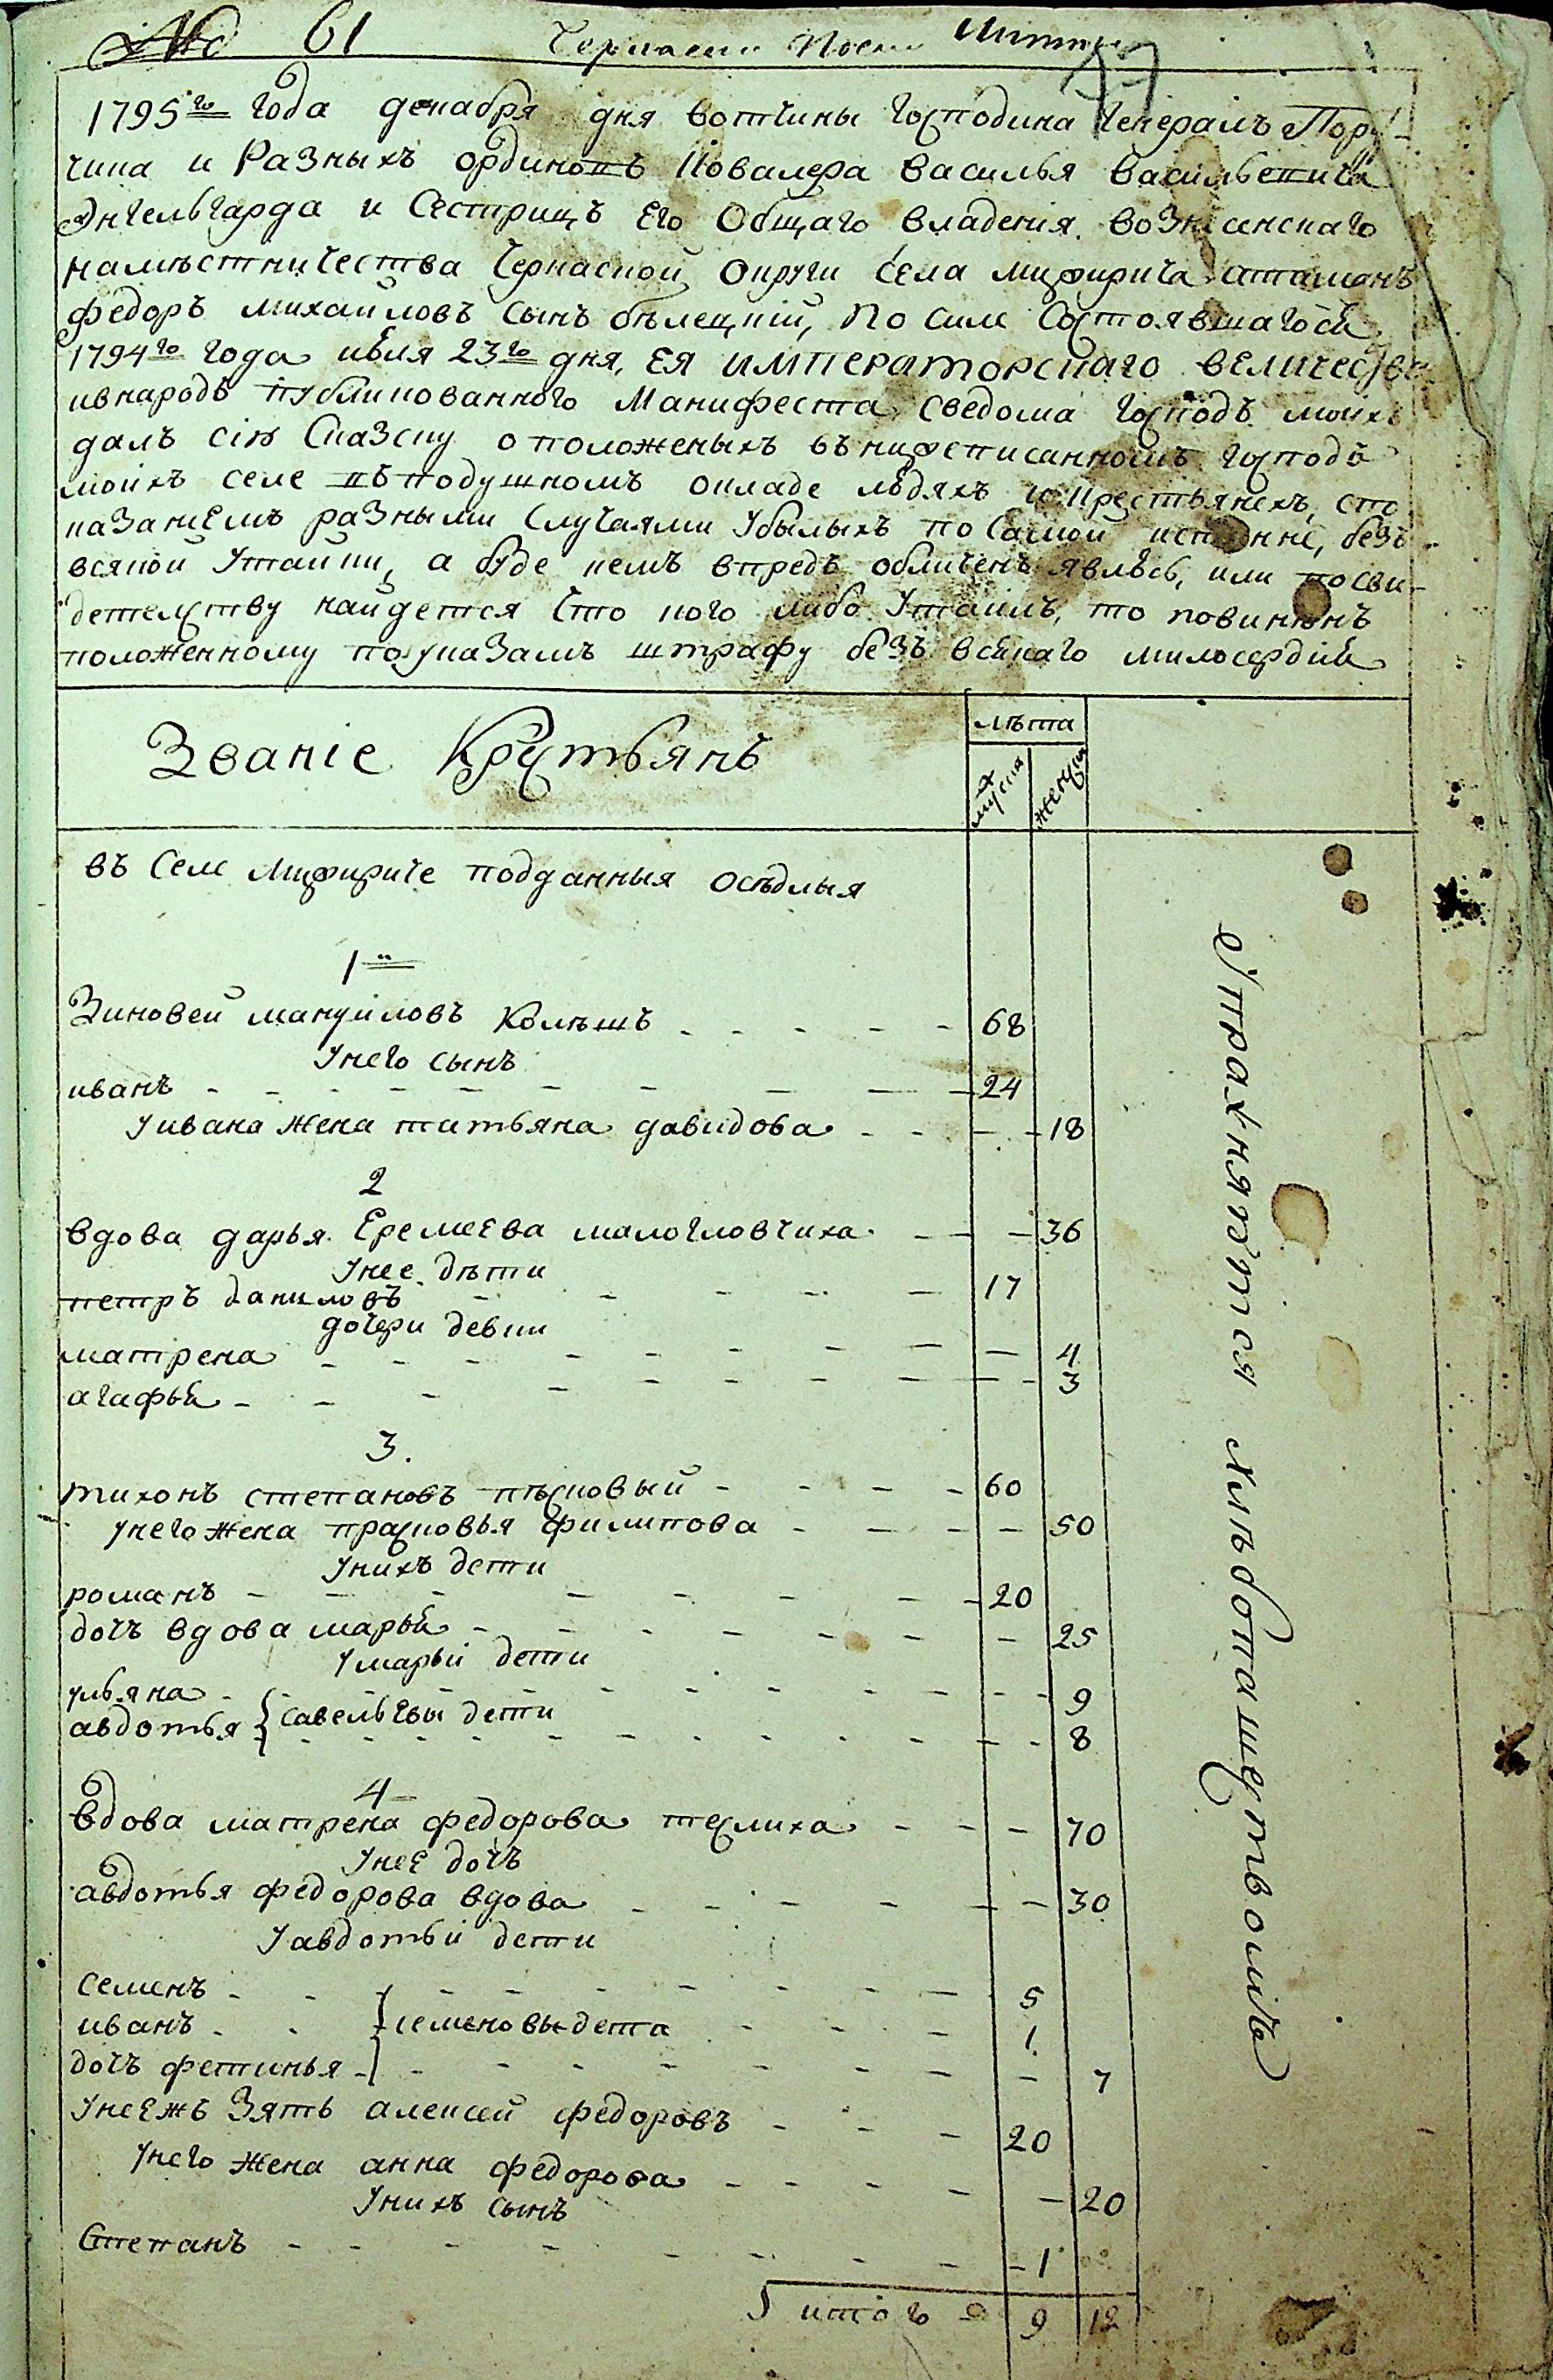 61
1795го года декабря дня вотчины Господина Генералъ Пору-
чика и Разныхъ ординовъ Ковалера Василья Васильевича
Энгельгарда и Сестрицъ Его Общаго владения. вознесенскаго
намѣстничества Черкаской округи Села мижирича атаманъ
федоръ михайловъ сынъ бѣлецкій, По силе Состоявшагося
1794го года июля 23го дня, ЕЯ ИМПЕРАТОРСКАГО ВЕЛИЧЕСТВА
ивнародъ публикованного Манифеста, сведома Господъ моихъ
далъ сію Сказску о положеныхъ въ нижеписанномъ Господъ
моихъ селе въ подушномъ окладе людяхъ и крестьянехъ, спо
казаниемъ разными Случаями Убылыхъ по Самой истинне, безъ
всякой Утайки, а буде кемъ впредь обличенъ явлюсь, или по сви-
детелству найдется что кого либо Утаилъ, то повиненъ
положенному по указамъ штрафу безъ всякаго милосердия
Званіе Крестьянъ
лѣта
мужска
женска
въ Селе Мижириче подданныя осѣдлыя
1й
Зиновей мануиловъ Колѣшъ - - - - - 68
Унего сынъ
иванъ - - - - - - - - 24
Уивана жена татьяна давидова - - - - 18
2
вдова дарья Еремеева малогловчиха - - - 36
Унее дѣти
петръ даниловъ - - - - - 17
дочери девки
матрена - - - - - - - - - 4
агафья - - - - - - - - - 3
3.
тихонъ степановъ пѣсковый - - - - 60
Унего жена прасковья филипова - - - - 50
Унихъ дети
романъ - - - - - - - 20
дочъ вдова марья - - - - - - - 25
Умарьи дети
ульяна - - - - - - - - - 9
савельевы дети
авдотья - - - - - - - - - 8
4
вдова матрена федорова теслиха - - - 70
Унеe дочъ
авдотья федорова вдова - - - - - - 30
Уавдотьи дети
Семенъ - - - - - - - - 5
иванъ - - семеновы дети - - - 1
дочъ фетинья - - - - - - - - 7
Унеежъ Зять алексей федоровъ - - - 20
Унего жена анна федорова - - - - - 20
Унихъ сынъ
Степанъ - - - - - - - - 1
итого 9 12
Упражняются хлѣбопашествомъ